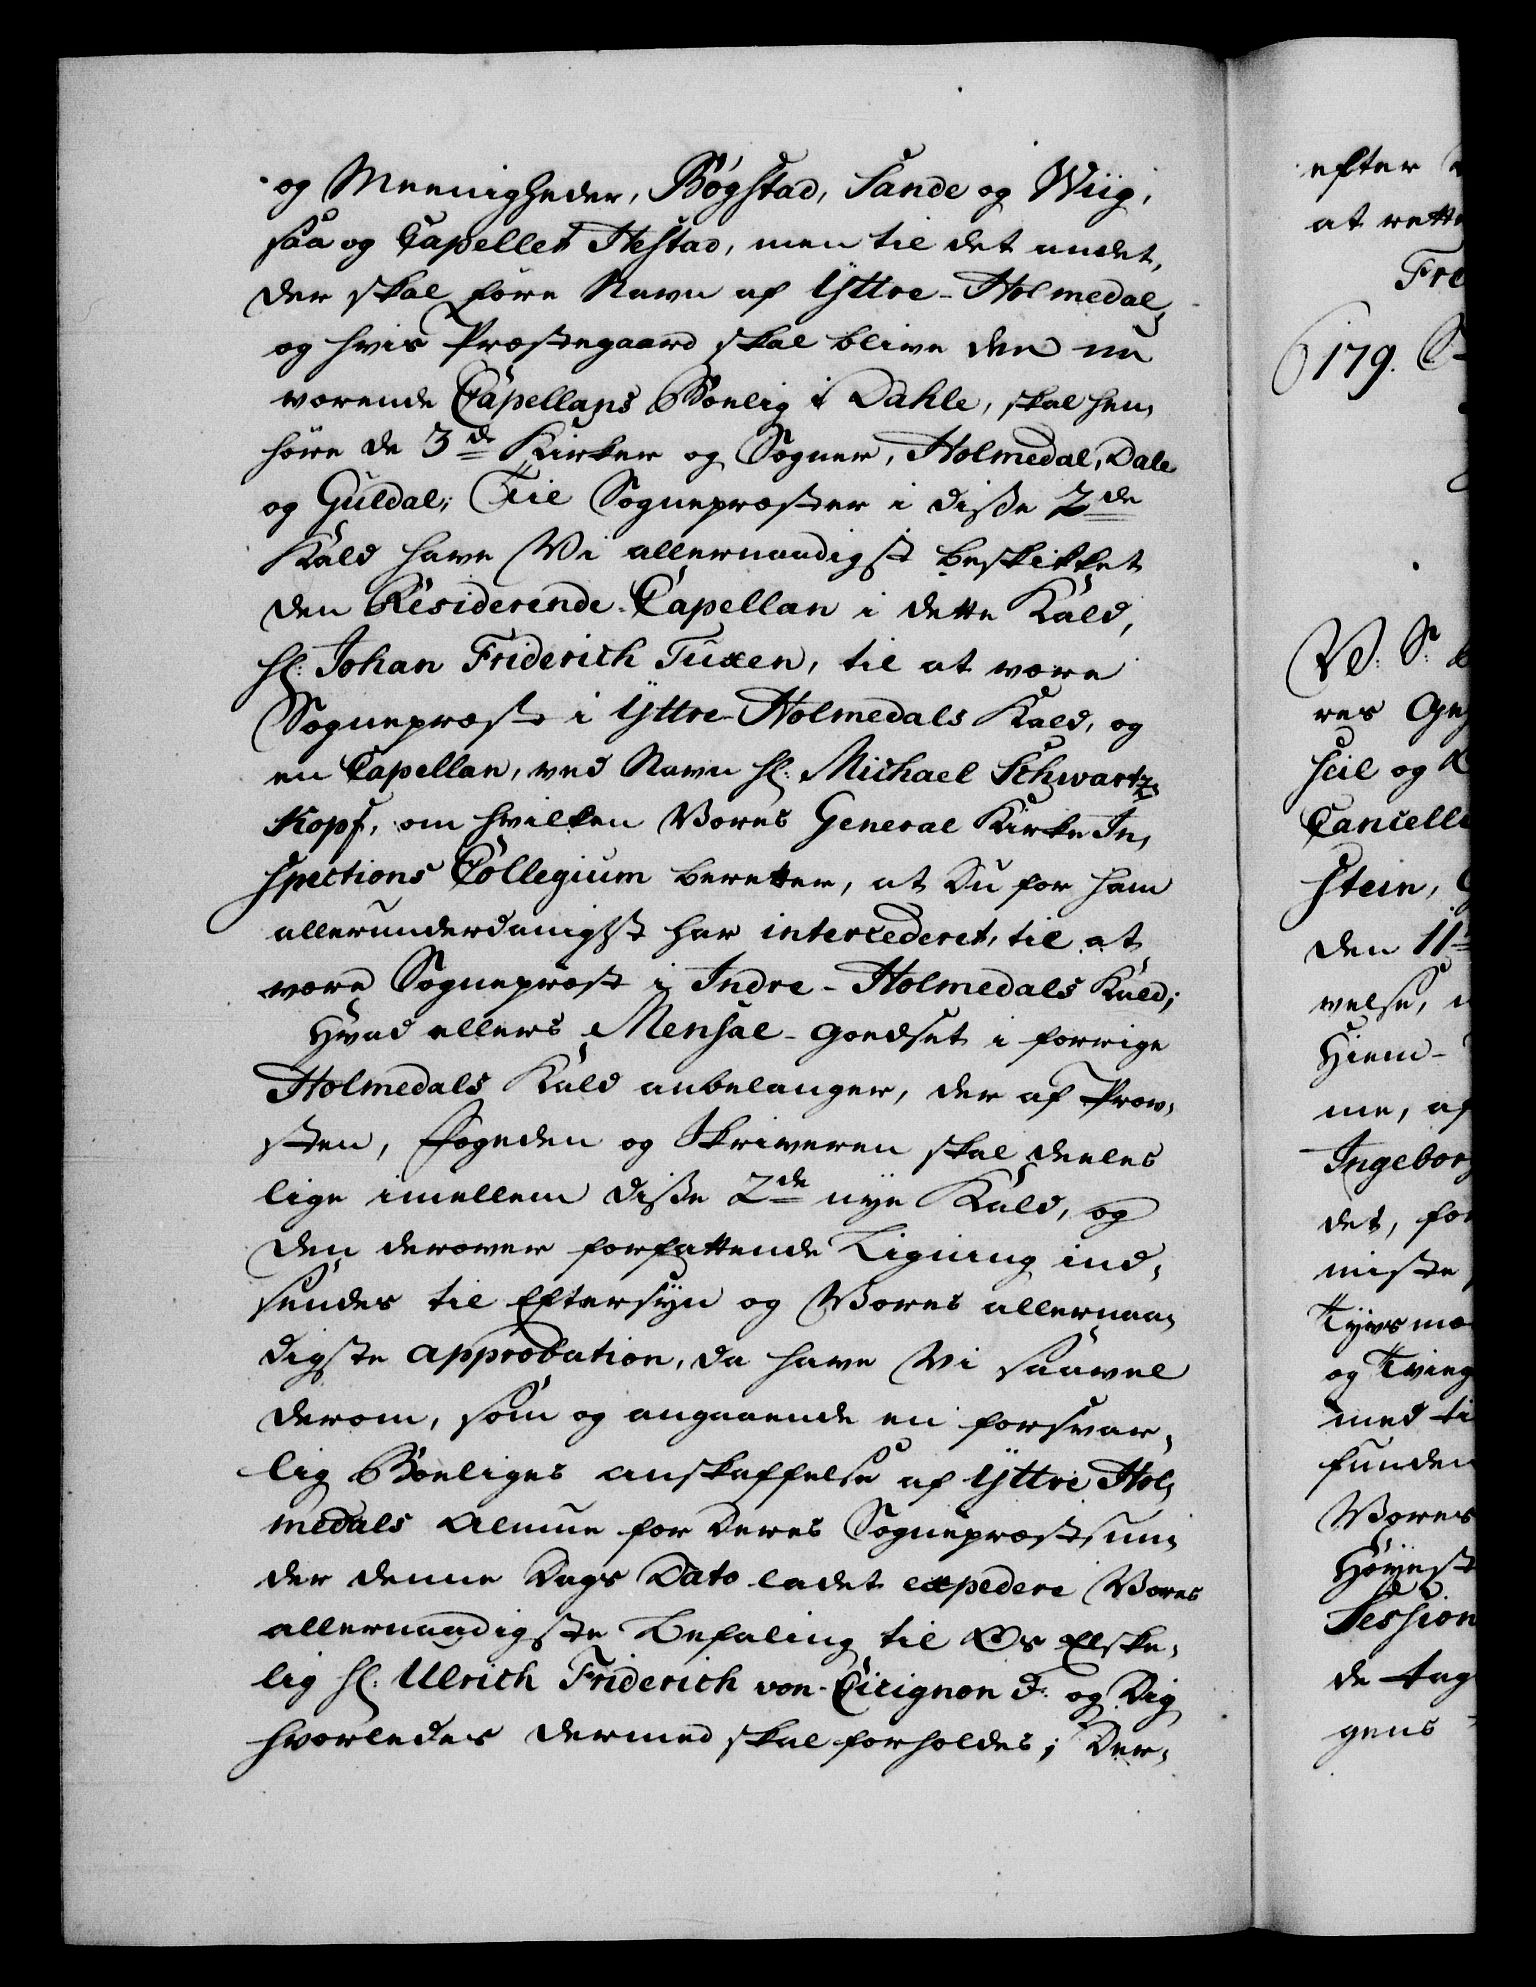 og Meenigheder, Bøgstad, Sande og Wiig,
saa og Capellet Hestad, men til det andet,
der skal føre Navn af Yttre-Holmedal,
og hvis Præstegaard skal blive den nu
værende Capellans Boelig i Dahle, skal hen,
høre de 3de Kirker og Sogner, Holmedal, Dale
og Guldal; Til Sognepræster i disse 2de
Kald have Vi allernaadigst beskikket
den Residerende-Capellan i dette Kald,
Hr. Johan Friderich Tuxen, til at være
Sognepræst i Yttre-Holmedals Kald, og
en Capellan, ved Navn Hr. Michael Schwartz,
Kopf, om hvilken Vores General Kirke In,
spections Collegium beretter, at Du for ham
allerunderdanigst har intercederet, til at
være Sognepræst i Indre-Holmedals Kald;
Hvad ellers Mensal-Goedset i forrige
Holmedals Kald anbelanger, der af Prov,
sten, Fogeden og Skriveren skal deeles
lige imellem disse 2de nye Kald, og
den derover forfattende Ligning ind,
sendes til Eftersyn og Vores allernaa,
digste Approbation, da have Vi saavel
derom, som og angaaende en forsvar,
lig Boeliges anskaffelse af Yttre Hol,
medals Almue for deres Sognepræst, un,
der denne Dags Dato ladet expedere Vores
allernaadigste Befaling til Os Elske,
lig Hr. Ulrich Friderich von-Cicignon d: og Dig
hvorledes dermed skal forholdes; Der,
efter
at rette
Fre
179.
V: S:
res
seil og
Cancelle
stein,
den 11
velse,
Hiem-
me, af
Ingebor
det, for
miste
Tyvs
og Tving
med ti
funden
Vores
Høyest
Session
de tag
gens